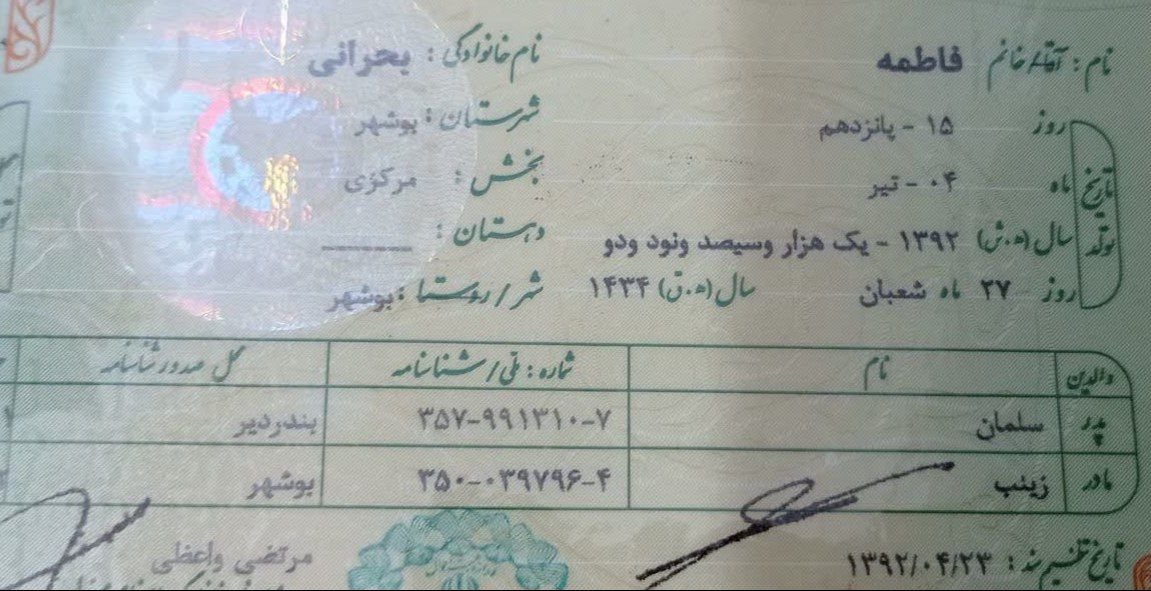 نام : آقا/خانم فاطمه نام خانوادگی : بحرانی
روز ۱۵ - پانزدهم شهرستان : بوشهر
تاریخ تولد
ماه ۰۴ - تیر بخش : مرکزی
سال (ه.ش) ۱۳۹۲ - یک هزار وسیصد ونود ودو دهستان : ————
روز ۲۷ ماه شعبان سال (ه.ق) ۱۴۳۴ شهر/روستا : بوشهر
والدین نام شماره : ملی/شناسنامه محل صدور شناسنامه
پدر سلمان ۳۵۷-۹۹۱۳۱۰-۷ بندردیر
مادر زینب ۳۵۰-۰۳۹۷۹۶-۴ بوشهر
تاریخ تنظیم سند : ۱۳۹۲/۰۴/۲۳
مرتضی واعظی